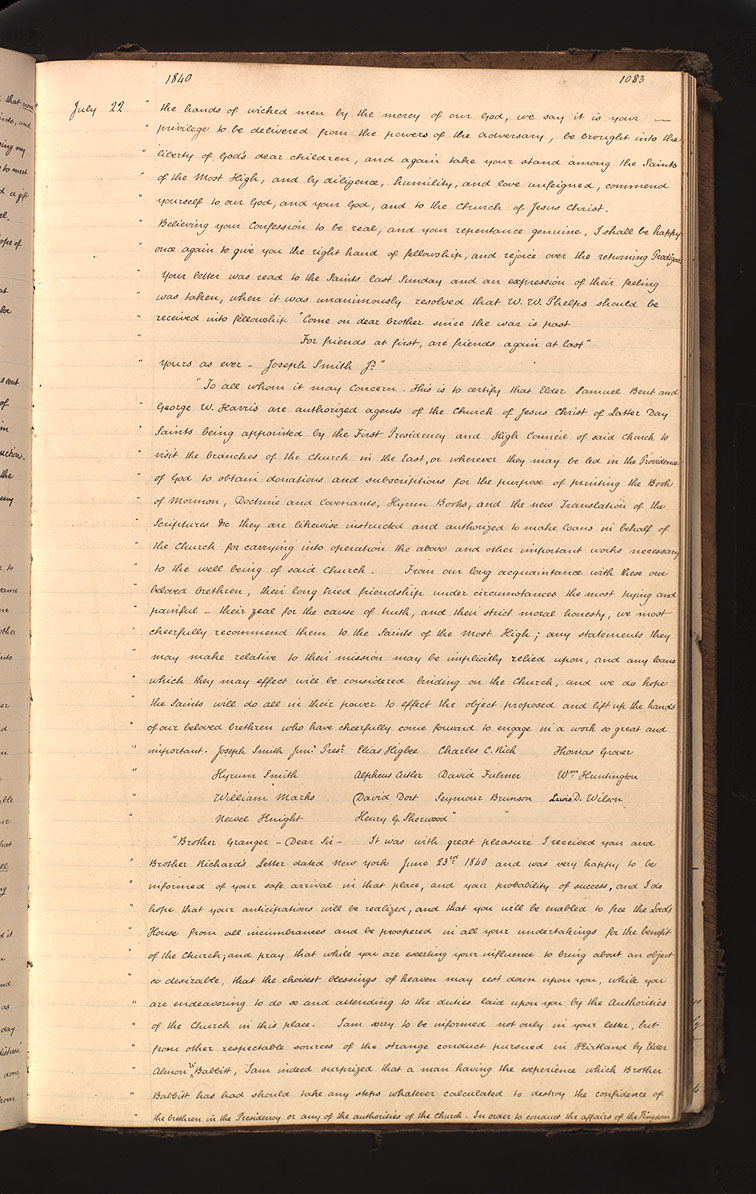 1840 1083
July 22 " the hands of wicked men by the mercy of our God, we say it is your —
" privilege to be delivered from the powers of the adversary, be brought into the
" liberty of God's dear children, and again take your stand among the Saints
" of the Most High, and by diligence, humility, and love unfeigned, commend
" yourself to our God, and your God, and to the Church of Jesus Christ.
" Believing your Confession to be real, and your repentance genuine, I shall be happy
" once again to give you the right hand of fellowship, and rejoice over the returning Prodigal
" Your letter was read to the Saints last Sunday and an expression of their feeling
" was taken, when it was unanimously resolved that W. W. Phelps should be
" received into fellowship. "Come on dear brother since the war is past
For friends at first, are friends again at last"
" Yours as ever — Joseph Smith Jr."
" "To all whom it may Concern. This is to certify that Elder Samuel Bent and
" George W. Harris are authorized agents of the Church of Jesus Christ of Latter Day
" Saints being appointed by the First Presidency and High Council of said Church to
" visit the branches of the Church in the East, or wherever they may be led in the Providence
" of God to obtain donations and subscriptions for the purpose of printing the Book
" of Mormon, Doctrine and Covenants, Hymn Books, and the new Translation of the
" Scriptures &c they are likewise instructed and authorized to make loans in behalf of
" the Church for carrying into operation the above and other important works necessary
" to the well being of said Church. From our long acquaintance with these our
" beloved brethren, their long tried friendship under circumstances the most trying and
" painful — their zeal for the cause of truth, and their strict moral honesty, we most
" cheerfully recommend them to the Saints of the Most High; any statements they
" may make relative to their mission may be implicitly relied upon, and any loans
" which they may effect will be considered binding on the Church, and we do hope
" the Saints will do all in their power to effect the object proposed and lift up the hands
" of our beloved brethren who have cheerfully come forward to engage in a work so great and
" important. Joseph Smith Junr. Prest. Elias Higbee Charles C. Rich Thomas Grover
" Hyrum Smith Alpheus Cutler David Fulmer Wm. Huntington
" William Marks David Dort Seymour Brunson Lewis D. Wilson
" Newel Knight Henry G. Sherwood"
"Brother Granger — Dear Sir — It was with great pleasure I received you and
" Brother Richard's Letter dated New York June 23rd 1840 and was very happy to be
" informed of your safe arrival in that place, and your probability of success, and I do
" hope that your anticipations will be realized, and that you will be enabled to free the Lord's
" House from all incumbrances and be prospered in all your undertakings for the benefit
" of the Church; and pray that while you are exerting your influence to bring about an object
" so desirable, that the choisest blessings of heaven may rest down upon you, while you
" are endeavoring to do so and attending to the duties laid upon you by the Authorities
" of the Church in this place. I am sorry to be informed not only in your letter, but
" from other respectable sources of the strange conduct pursued in Kirtland by Elder
" Almon W. Babbitt, I am indeed surprized that a man having the experience which Brother
" Babbitt has had should take any steps whatever calculated to destroy the confidence of
" the brethren in the Presidency or any of the authorities of the Church. In order to conduct the affairs of the Kingdom